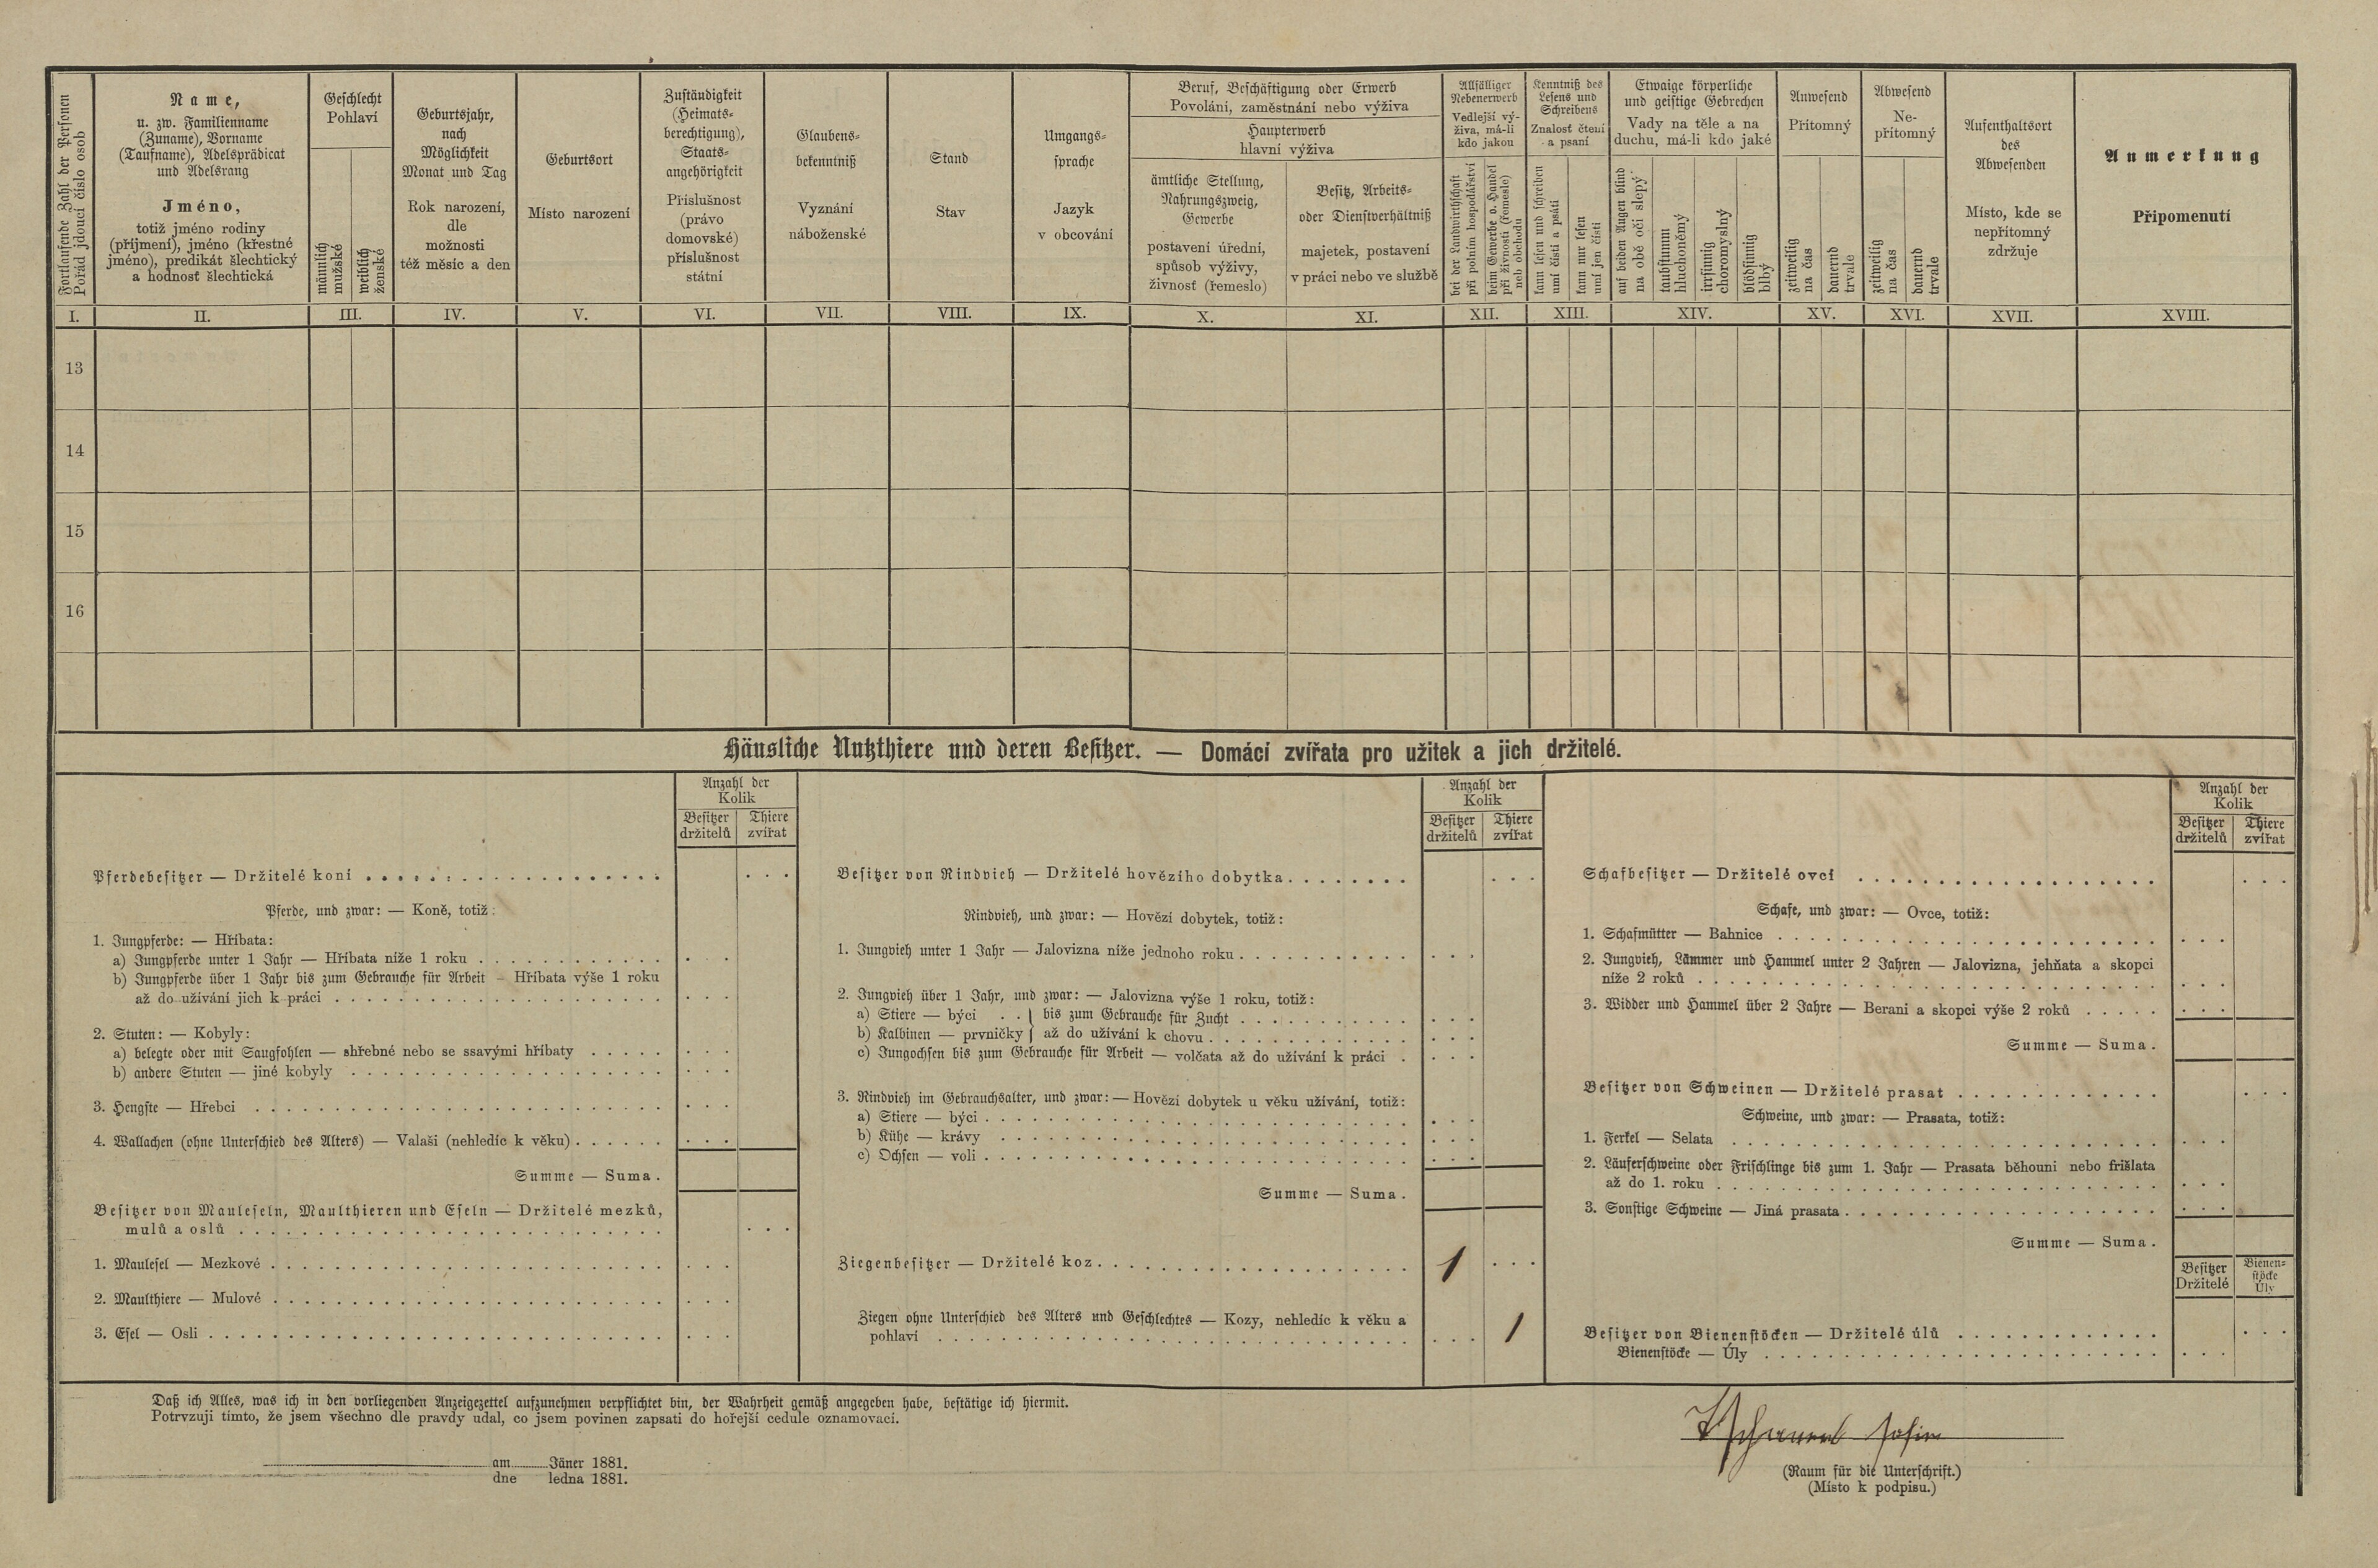 Fortlaufende Zahl der Personen
Pořád jdoucí číslo osob
Name,
u. zw. Familienname
(Zuname), Vorname
(Taufname), Adelsprädicat
und Adelsrang
Jméno,
totiž jméno rodiny
(příjmení), jméno (křestné
jméno), predikát šlechtický
a hodnost šlechtická
Geschlecht
Pohlaví
männlich
mužské
weiblich
ženské
Geburtsjahr,
nach
Möglichkeit
Monat und Tag
Rok narození,
dle
možnosti
též měsíc a den
Geburtsort
Místo narození
Zuständigkeit
(Heimats-
berechtigung),
Staats-
angehörigkeit
Příslušnost
(právo
domovské)
příslušnost
státní
Glaubens-
bekenntniß
Vyznání
náboženské
Stand
Stav
Umgangs-
sprache
Jazyk
v obcování
Beruf, Beschäftigung oder Erwerb
Povolání, zaměstnání nebo výživa
Haupterwerb
hlavní výživa
ämtliche Stellung,
Nahrungszweig,
Gewerbe
postavení úřední,
spůsob výživy,
živnosť (řemeslo)
Besitz, Arbeits-
oder Dienstverhältniß
majetek, postavení
v práci nebo ve službě
Allfälliger
Nebenerwerb
Vedlejší vý-
živa, má-li
kdo jakou
bei der Landwirthschaft
při polním hospodářství
beim Gewerbe o. Handel
při živnosti (řemeslo)
neb obchodu
Kenntniß des
Lesens und
Schreibens
Znalosť čtení
a psaní
kann lesen und schreiben
umí čísti a psáti
kann nur lesen
umí jen čísti
Etwaige körperliche
und geistige Gebrechen
Vady na těle a na
duchu, má-li kdo jaké
auf beiden Augen blind
na obě oči slepý
taubstumm
hluchoněmý
irrsinnig
choromyslný
blödsinnig
blbý
Anwesend
Přítomný
zeitweilig
na čas
dauernd
trvale
Abwesend
Ne-
přítomný
zeitweilig
na čas
dauernd
trvale
Aufenthaltsort
des
Abwesenden
Místo, kde se
nepřítomný
zdržuje
Anmerkung
Připomenutí
I. II. III. IV. V. VI. VII. VIII. IX. X. XI. XII. XIII. XIV. XV. XVI. XVII. XVIII.
13
14
15
16
Häusliche Nutzthiere und deren Besitzer. — Domácí zvířata pro užitek a jich držitelé.
Anzahl der
Kolik
Besitzer Thiere
držitelů zvířat
Pferdebesitzer — Držitelé koní
Pferde, und zwar: — Koně, totiž:
1. Jungpferde: — Hříbata:
a) Jungpferde unter 1 Jahr — Hříbata níže 1 roku
b) Jungpferde über 1 Jahr bis zum Gebrauche für Arbeit – Hříbata výše 1 roku
až do užívání jich k práci
2. Stuten: — Kobyly:
a) belegte oder mit Saugfohlen — shřebné nebo se ssavými hříbaty
b) andere Stuten — jiné kobyly
3. Hengste — Hřebci
4. Wallachen (ohne Unterschied des Alters) — Valaši (nehledíc k věku)
Summe — Suma.
Besitzer von Mauleseln, Maulthieren und Eseln — Držitelé mezků,
mulů a oslů
1. Maulesel — Mezkové
2. Maulthiere — Mulové
3. Esel — Osli
Anzahl der
Kolik
Besitzer Thiere
držitelů zvířat
Besitzer von Rindvieh — Držitelé hovězího dobytka
Rindvieh, und zwar: — Hovězí dobytek, totiž:
1. Jungvieh unter 1 Jahr — Jalovizna níže jednoho roku
2. Jungvieh über 1 Jahr, und zwar: — Jalovizna výše 1 roku, totiž:
a) Stiere — býci . . } bis zum Gebrauche für Zucht
b) Kalbinen — prvničky } až do užívání k chovu
c) Jungochsen bis zum Gebrauche für Arbeit — volčata až do užívání k práci
3. Rindvieh im Gebrauchsalter, und zwar: — Hovězí dobytek u věku užívání, totiž:
a) Stiere — býci
b) Kühe — krávy
c) Ochsen — voli
Summe — Suma.
Ziegenbesitzer — Držitelé koz 1
Ziegen ohne Unterschied des Alters und Geschlechtes — Kozy, nehledíc k věku a
pohlaví 1
Anzahl der
Kolik
Besitzer Thiere
držitelů zvířat
Schafbesitzer — Držitelé ovcí
Schafe, und zwar: — Ovce, totiž:
1. Schafmütter — Bahnice
2. Jungvieh, Lämmer und Hammel unter 2 Jahren — Jalovizna, jehňata a skopci
níže 2 roků
3. Widder und Hammel über 2 Jahre — Berani a skopci výše 2 roků
Summe — Suma.
Besitzer von Schweinen — Držitelé prasat
Schweine, und zwar: — Prasata, totiž:
1. Ferkel — Selata
2. Läuferschweine oder Frischlinge bis zum 1. Jahr — Prasata běhouni nebo frišlata
až do 1. roku
3. Sonstige Schweine — Jiná prasata
Summe — Suma.
Besitzer Bienen-
stöcke
Držitelé Úly
Besitzer von Bienenstöcken — Držitelé úlů
Bienenstöcke — Úly
Daß ich Alles, was ich in den vorliegenden Anzeigezettel aufzunehmen verpflichtet bin, der Wahrheit gemäß angegeben habe, bestätige ich hiermit.
Potrvzuji tímto, že jsem všechno dle pravdy udal, co jsem povinen zapsati do hořejší cedule oznamovací.
am Jäner 1881.
dne ledna 1881.
(Raum für die Unterschrift.)
(Místo k podpisu.)